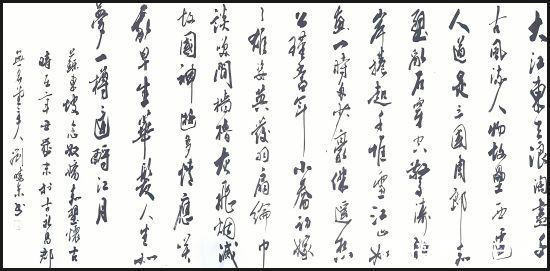 大江東去浪淘盡千
古風流人物故壘西邊
人道是三國周郎赤
壁亂石穿空驚濤拍
岸捲起千堆雪江山如
畫一時多少豪傑遙想
公瑾當年小喬初嫁
了雄姿英發羽扇綸巾
談笑間檣櫓灰飛烟滅
故國神遊多情應笑
我早生華髮人生如
夢一樽還酹江月
蘇東坡念奴嬌赤壁懷古
時在 於古永昌郡
主人劉 書